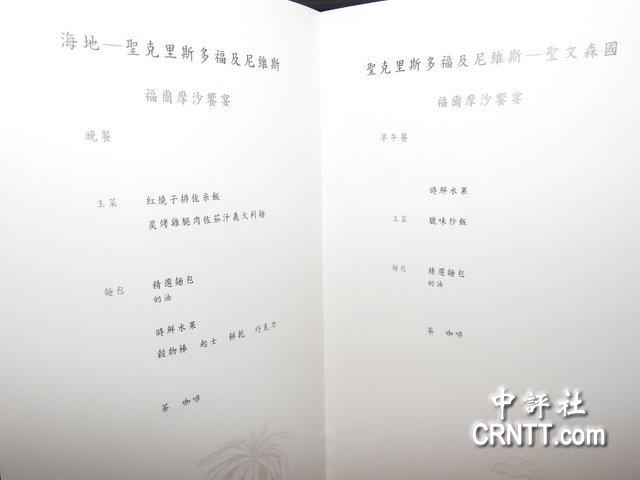 海地—聖克里斯多福及尼維斯
福爾摩沙饗宴
晚餐
主菜 紅燒子排佐米飯
炭烤雞腿肉佐茄汁義大利麵
麵包 精選麵包
奶油
時鮮水果
穀物棒 起士 餅乾 巧克力
茶 咖啡
聖克里斯多福及尼維斯—聖文森國
福爾摩沙饗宴
早午餐
時鮮水果
主菜 臘味炒飯
麵包 精選麵包
奶油
茶 咖啡
中評社
CRNTT.com